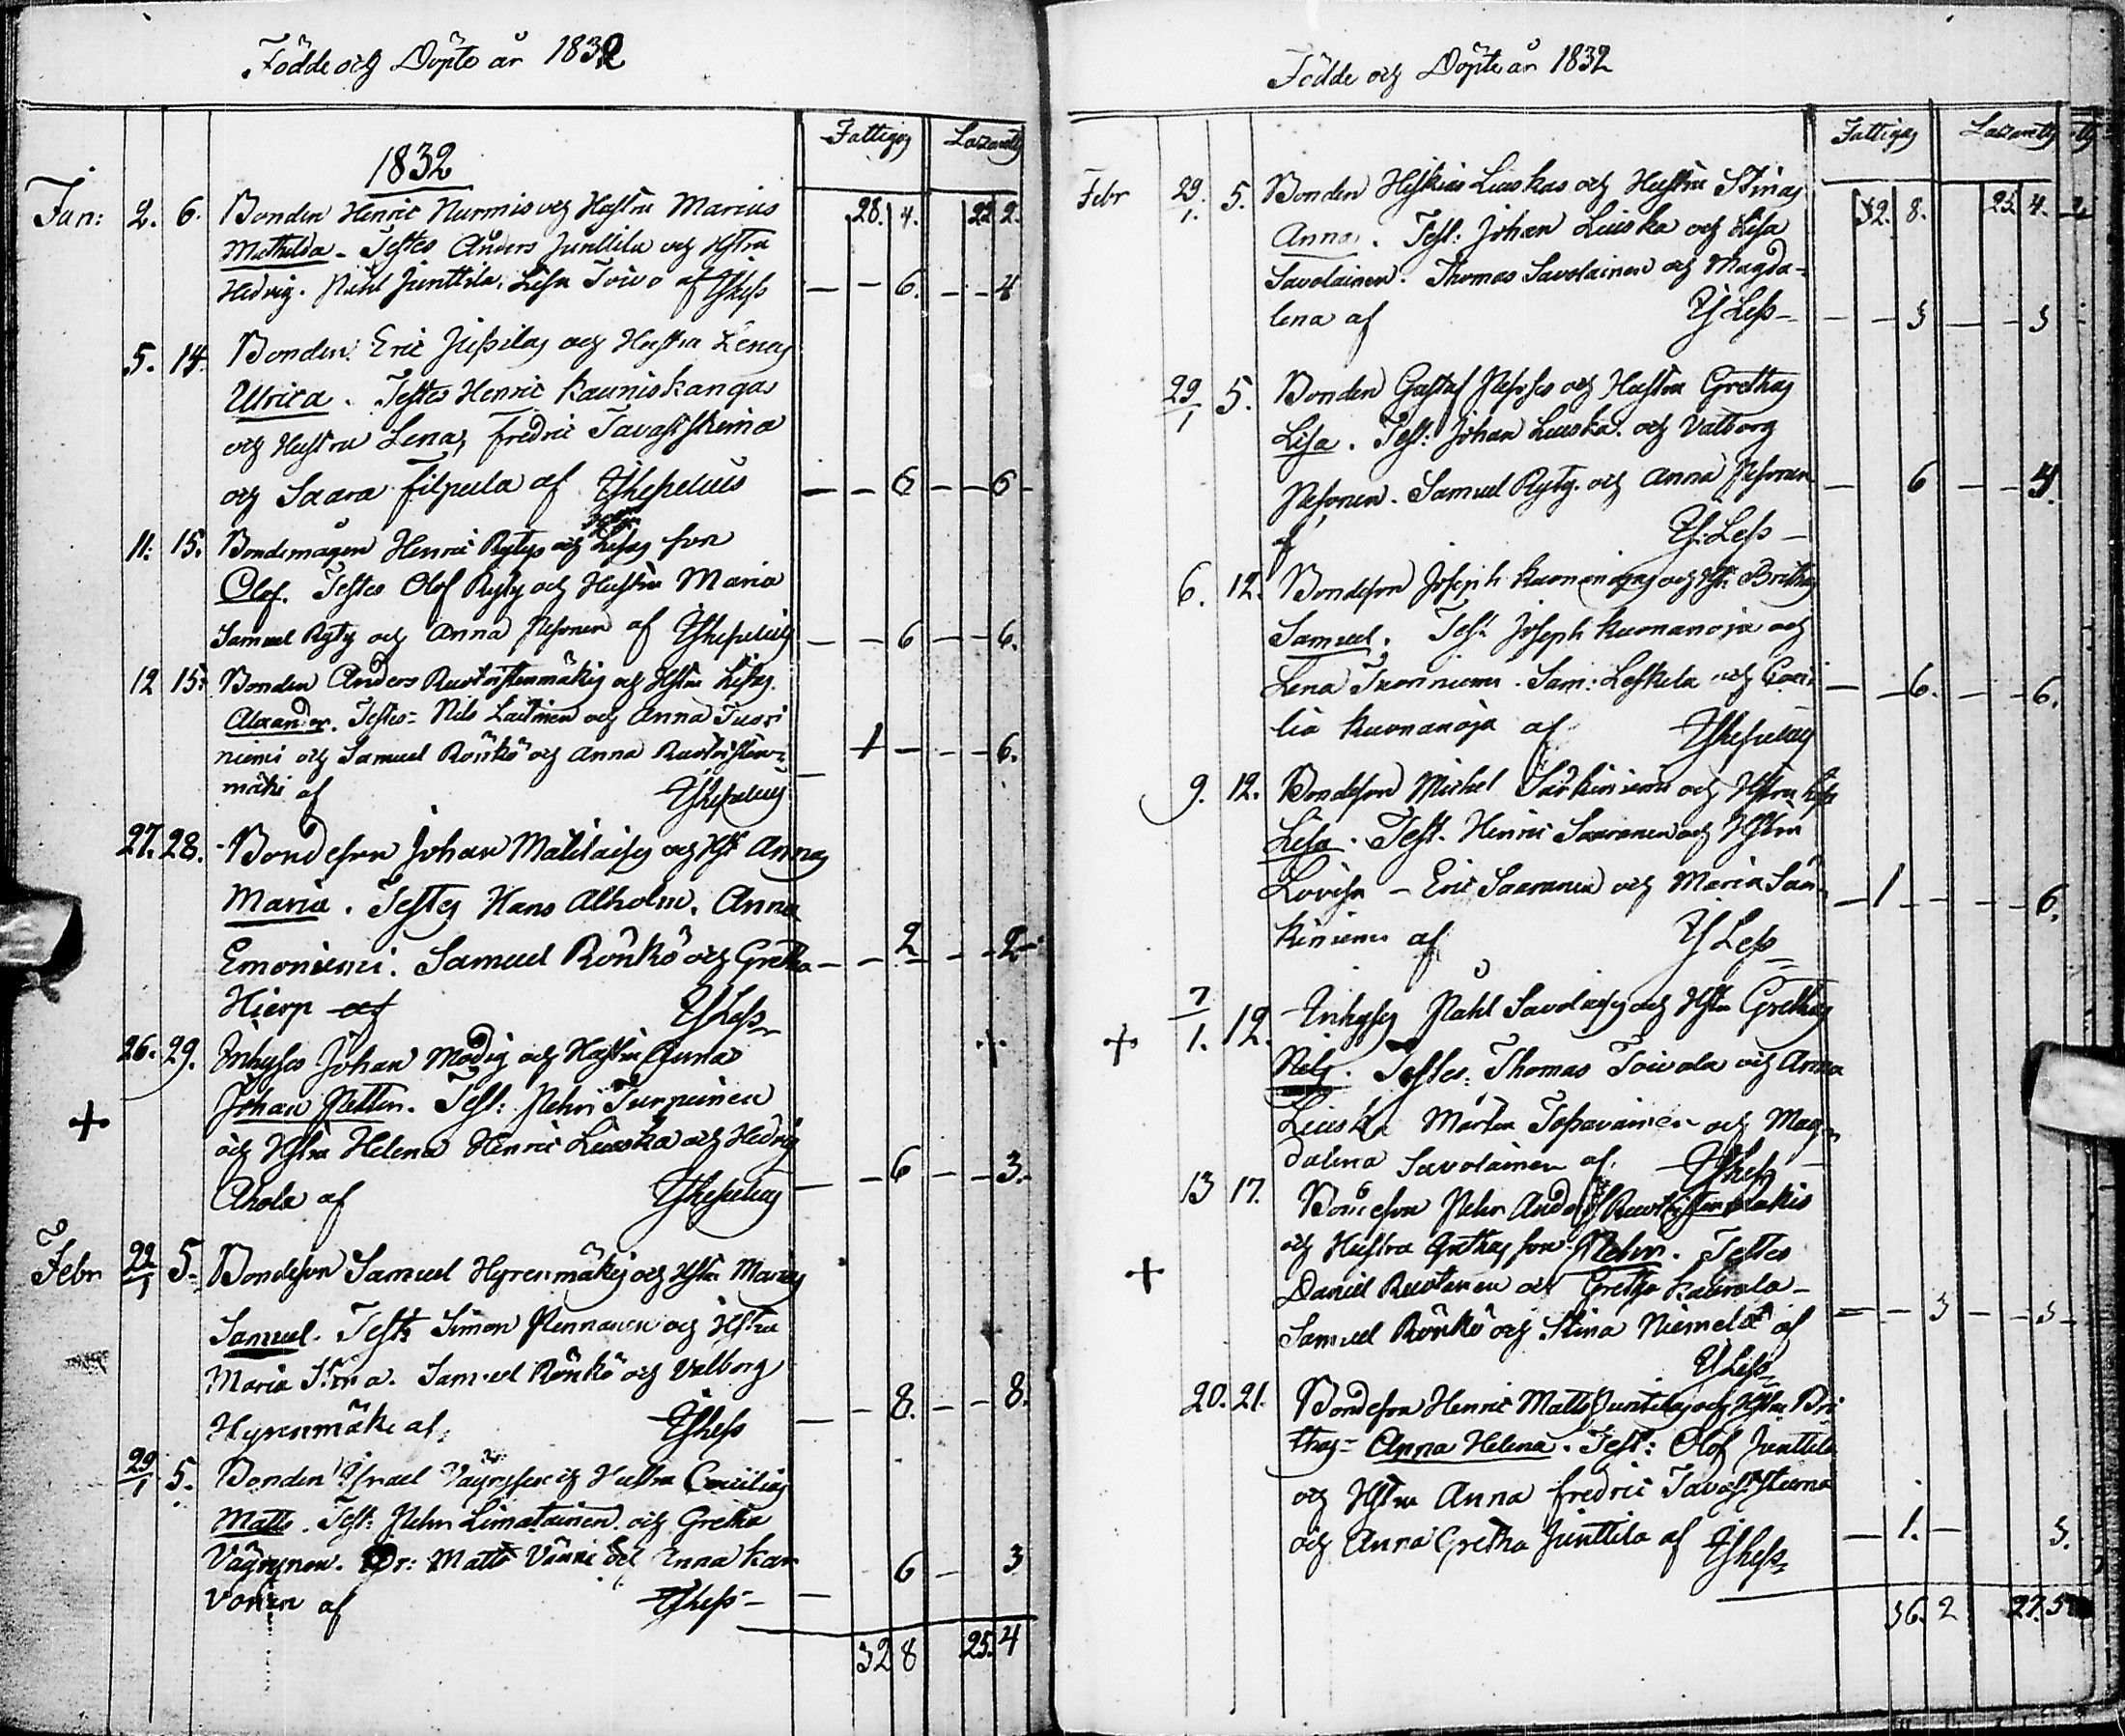 Födde och Döpte år 1832
Fattigas Lazaretts
1832
Jan: 2. 6. Bonden Henric Nurmis och Hustru Marias 28. 4. 22 2.
Mathilda - Testes Anders Junttila och Hstru
Hedvig. Påhl Junttila, Lisa Toivo af — — 6. — — 4
5. 14. Bonden Eric och Hustru Lenas
Ulrica. Testes Henric Kauniskangas
och Hustru Lena, Fredric Tavaststierna
och Saara Filpula af — — 6 — — 6
Hstru
11. 15. Bondemågen Henric Rytys och Lisas son
Olof. Testes Olof Ryty och Hustru Maria
Samuel Ryty och Anna Pesonen af — — 6 — — 6.
12 15. Bonden Anders Ruotoistenmäkis och Hstru Lisas
Alexander. Testes Nils Laitinen och Anna Tuori
niemi och Samuel Rönkö och Anna Ruotoisten- — 1 — — — 6.
mäki af
27. 28. Bondeson Johan Matilaises och Hst Annas
Maria. Testes Hans Alholm. Anna
Emoniemi. Samuel Rönkö och Gretha — — 2 — — 2
Hierp af
26. 29. Inhyses Johan Modig och Hustru Annas +
Johan Petter. Test: Pehr Turpeinen
+
och Hstru Helena Henric Liuska och Hedvig
Ahola af — — 6 — — 3.
Febr 22/1 5. Bondeson Samuel Hyrenmäkis och Hstru Marias
Samuel. Test: Simon Pennanen och Hstru
Maria Stina. Samuel Rönkö och Valborg
Hyrenmäki af — — 8. — — 8.
29/1 5. Bonden Israel Väyrysen och Hustru Ceciliæ
Matts. Test: Pehr Limatainen och Gretha
Väyrynen. Matts och Anna Kar — 6 — 3
vonen af
32 8 25. 4
Födde och Döpte år 1832
Fattigas Lazaretts
Febr 29/1. 5. Bonden Hiskias Liuskas och Hustru Stinas 32. 8. 25. 4.
Anna. Test: Johan Liuska och Lisa
Savolainen. Thomas Savolainen och Magda-
lena af — — 3 — — 3
29/1 5. Bonden Gustaf Pesoses och Hustru Grethas
Lisa. Test: Johan Liuska och Valborg
Pesonen. Samuel Ryty och Anna Pesonen — 6 — — 4.
af
6. 12. Bondeson Joseph Kuonanojas och Hst: Brithas
Samuel. Test: Joseph Kuonanoja och
Lena Sam: Leskela och Ceci — 6. — — 6.
lia Kuonanoja af
9. 12. Bondeson Michel Särkiniemi och Hstru
Lisa. Test. Henric Saaranen och Hstru
Lovisa - Eric Saaranen och Maria Sär- — 1 — — — 6.
kiniemi af
7/1. 12. Inhyses Påhl Savolaises och Hstru Grethas
+
Nils. Testes: Thomas Toivola och Anna
Liuska Mårten Tossavainen och Mag-
dalena Savolainen af.
13 17. Bondeson Pehr And: Ruotoistenmäkis
och Hustru Grethas son Pehr. Testes
+
Daniel Ruotanen och Gretha Kaurala -
Samuel Rönkö och Stina Niemelä af — — 3 — — 3
20. 21. Bondeson Henric Matts Junttilas och Hstru Bri
thas - Anna Helena. Test: Olof Junttila
och Hstru Anna Fredric Tavaststierna
och Anna Gretha Junttila af — 1. — 3.
36. 2 27. 5